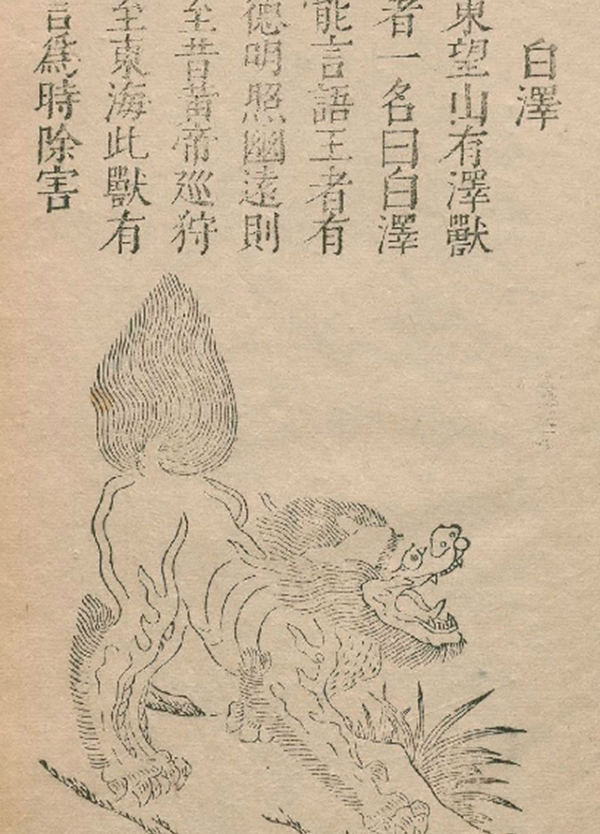 白澤
東望山有澤獸
者一名曰白澤
能言語王者有
德明照幽遠則
至昔黃帝巡狩
至東海此獸有
言爲時除害